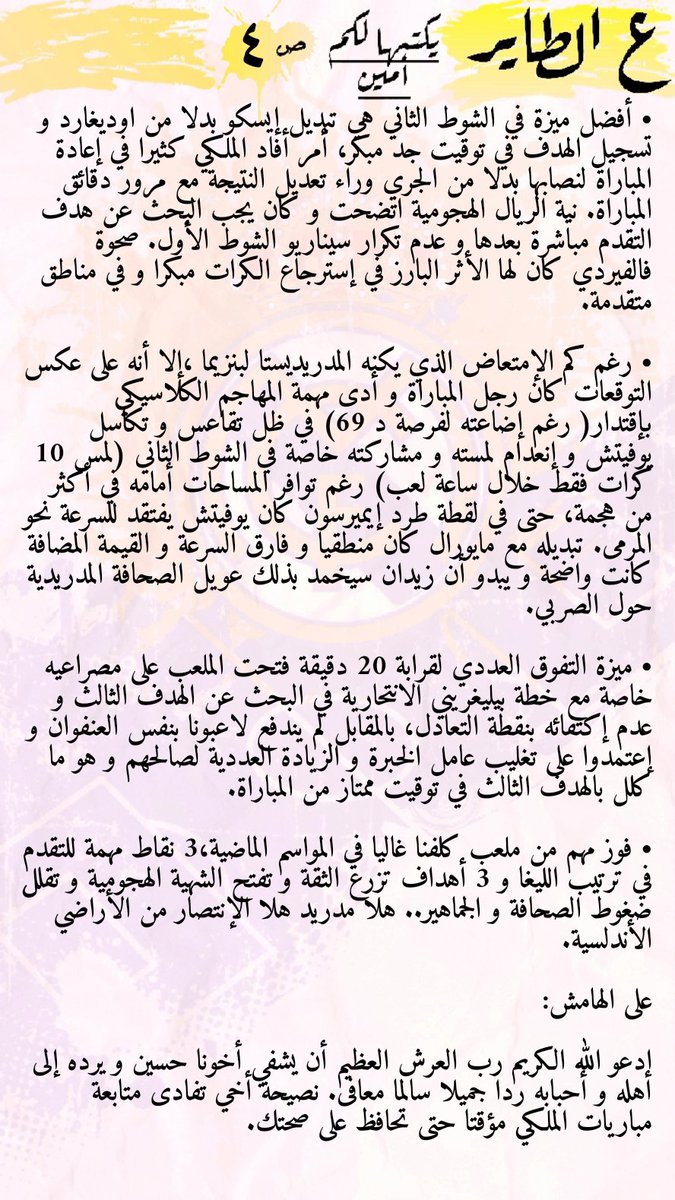 ع الطاير يكتبها لكم أمين ص ٤
• أفضل ميزة في الشوط الثاني هي تبديل إيسكو بدلا من اوديغارد و
تسجيل الهدف في توقيت جد مبكر، أمر أفاد الملكي كثيرا في إعادة
المباراة لنصابها بدلا من الجري وراء تعديل النتيجة مع مرور دقائق
المباراة. نية الريال الهجومية اتضحت و كان يجب البحث عن هدف
التقدم مباشرة بعدها و عدم تكرار سيناريو الشوط الأول. صحوة
فالفيردي كان لها الأثر البارز في إسترجاع الكرات مبكرا و في مناطق
متقدمة.
• رغم كم الإمتعاض الذي يكنه المدريديستا لبنزيما ،إلا أنه على عكس
التوقعات كان رجل المباراة و أدى مهمة المهاجم الكلاسيكي
بإقتدار( رغم إضاعته لفرصة د 69) في ظل تقاعس و تكاسل
يوفيتش و إنعدام لمسته و مشاركته خاصة في الشوط الثاني (لمس 10
كرات فقط خلال ساعة لعب) رغم توافر المساحات أمامه في أكثر
من هجمة، حتى في لقطة طرد إيميرسون كان يوفيتش يفتقد للسرعة نحو
المرمى. تبديله مع مايورال كان منطقيا و فارق السرعة و القيمة المضافة
كانت واضحة و يبدو أن زيدان سيخمد بذلك عويل الصحافة المدريدية
حول الصربي.
• ميزة التفوق العددي لقرابة 20 دقيقة فتحت الملعب على مصراعيه
خاصة مع خطة بيليغريني الانتحارية في البحث عن الهدف الثالث و
عدم إكتفائه بنقطة التعادل، بالمقابل لم يندفع لاعبونا بنفس العنفوان و
إعتمدوا على تغليب عامل الخبرة و الزيادة العددية لصالحهم و هو ما
كلل بالهدف الثالث في توقيت ممتاز من المباراة.
• فوز مهم من ملعب كلفنا غاليا في المواسم الماضية،3 نقاط مهمة للتقدم
في ترتيب الليغا و 3 أهداف تزرع الثقة و تفتح الشهية الهجومية و تقلل
ضغوط الصحافة و الجماهير.. هلا مدريد هلا الإنتصار من الأراضي
الأندلسية.
على الهامش:
إدعو الله الكريم رب العرش العظيم أن يشفي أخونا حسين و يرده إلى
أهله و أحبابه ردا جميلا سالما معافى. نصيحة أخي تفادى متابعة
مباريات الملكي مؤقتا حتى تحافظ على صحتك.